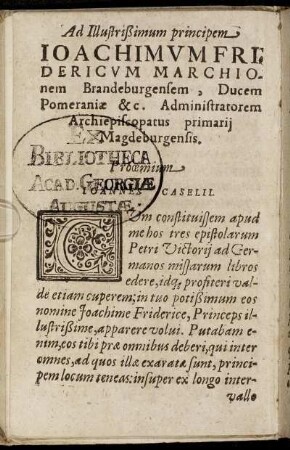 Ad Illustrißimum principem
IOACHIMVM FRI
DERICVM MARCHIO-
nem Brandeburgensem, Ducem
Pomeraniæ &c. Administratorem
Archiepiscopatus primarij
Magdeburgensis.
EX
BIBLIOTHECA
ACAD. GEORGIÆ
AUGUSTÆ.
Proœmium
IOANNIS CASELII.
CVm constituissem apud
me hos tres epistolarum
Petri Victorij ad Ger-
manos missarum libros
edere, idq; profiteri val-
de etiam cuperem; in tuo potißimum eos
nomine Ioachime Friderice, Princeps il-
lustrißime, apparere volui. Putabam e-
nim, eos tibi præ omnibus deberi, qui inter
omnes, ad quos illæ exaratæ sunt, princi-
pem locum teneas: insuper ex longo inter-
vallo